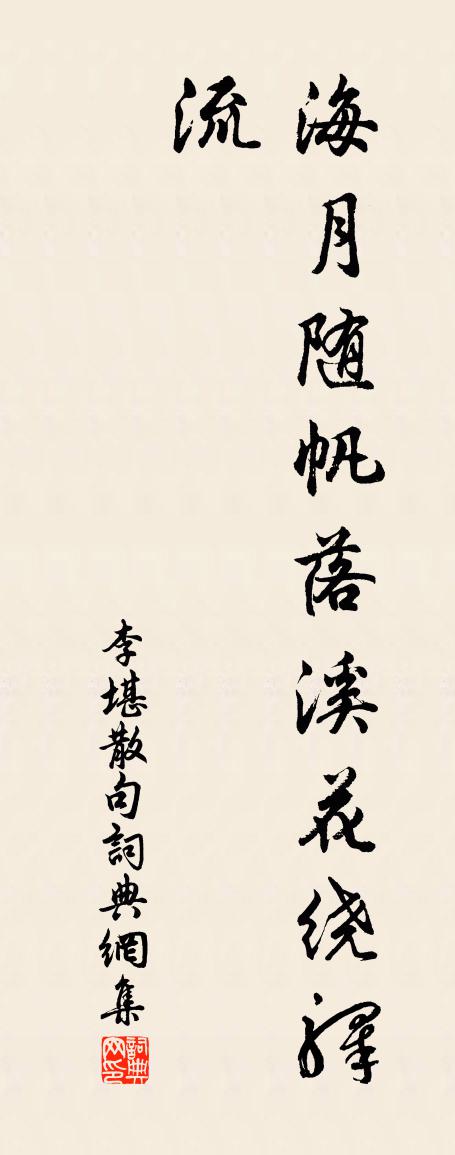 海月随帆落溪花绕驿
流
李堪散句詞典網集
詞典网印